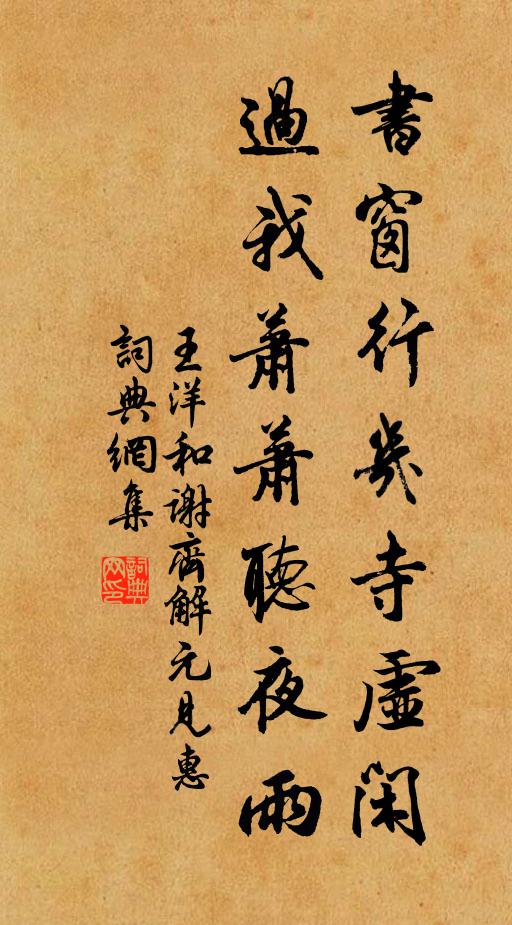 書窗行幾寺虛閑
過我蕭蕭聽夜雨
王洋和謝齊解元見惠
詞典網集
詞典網印